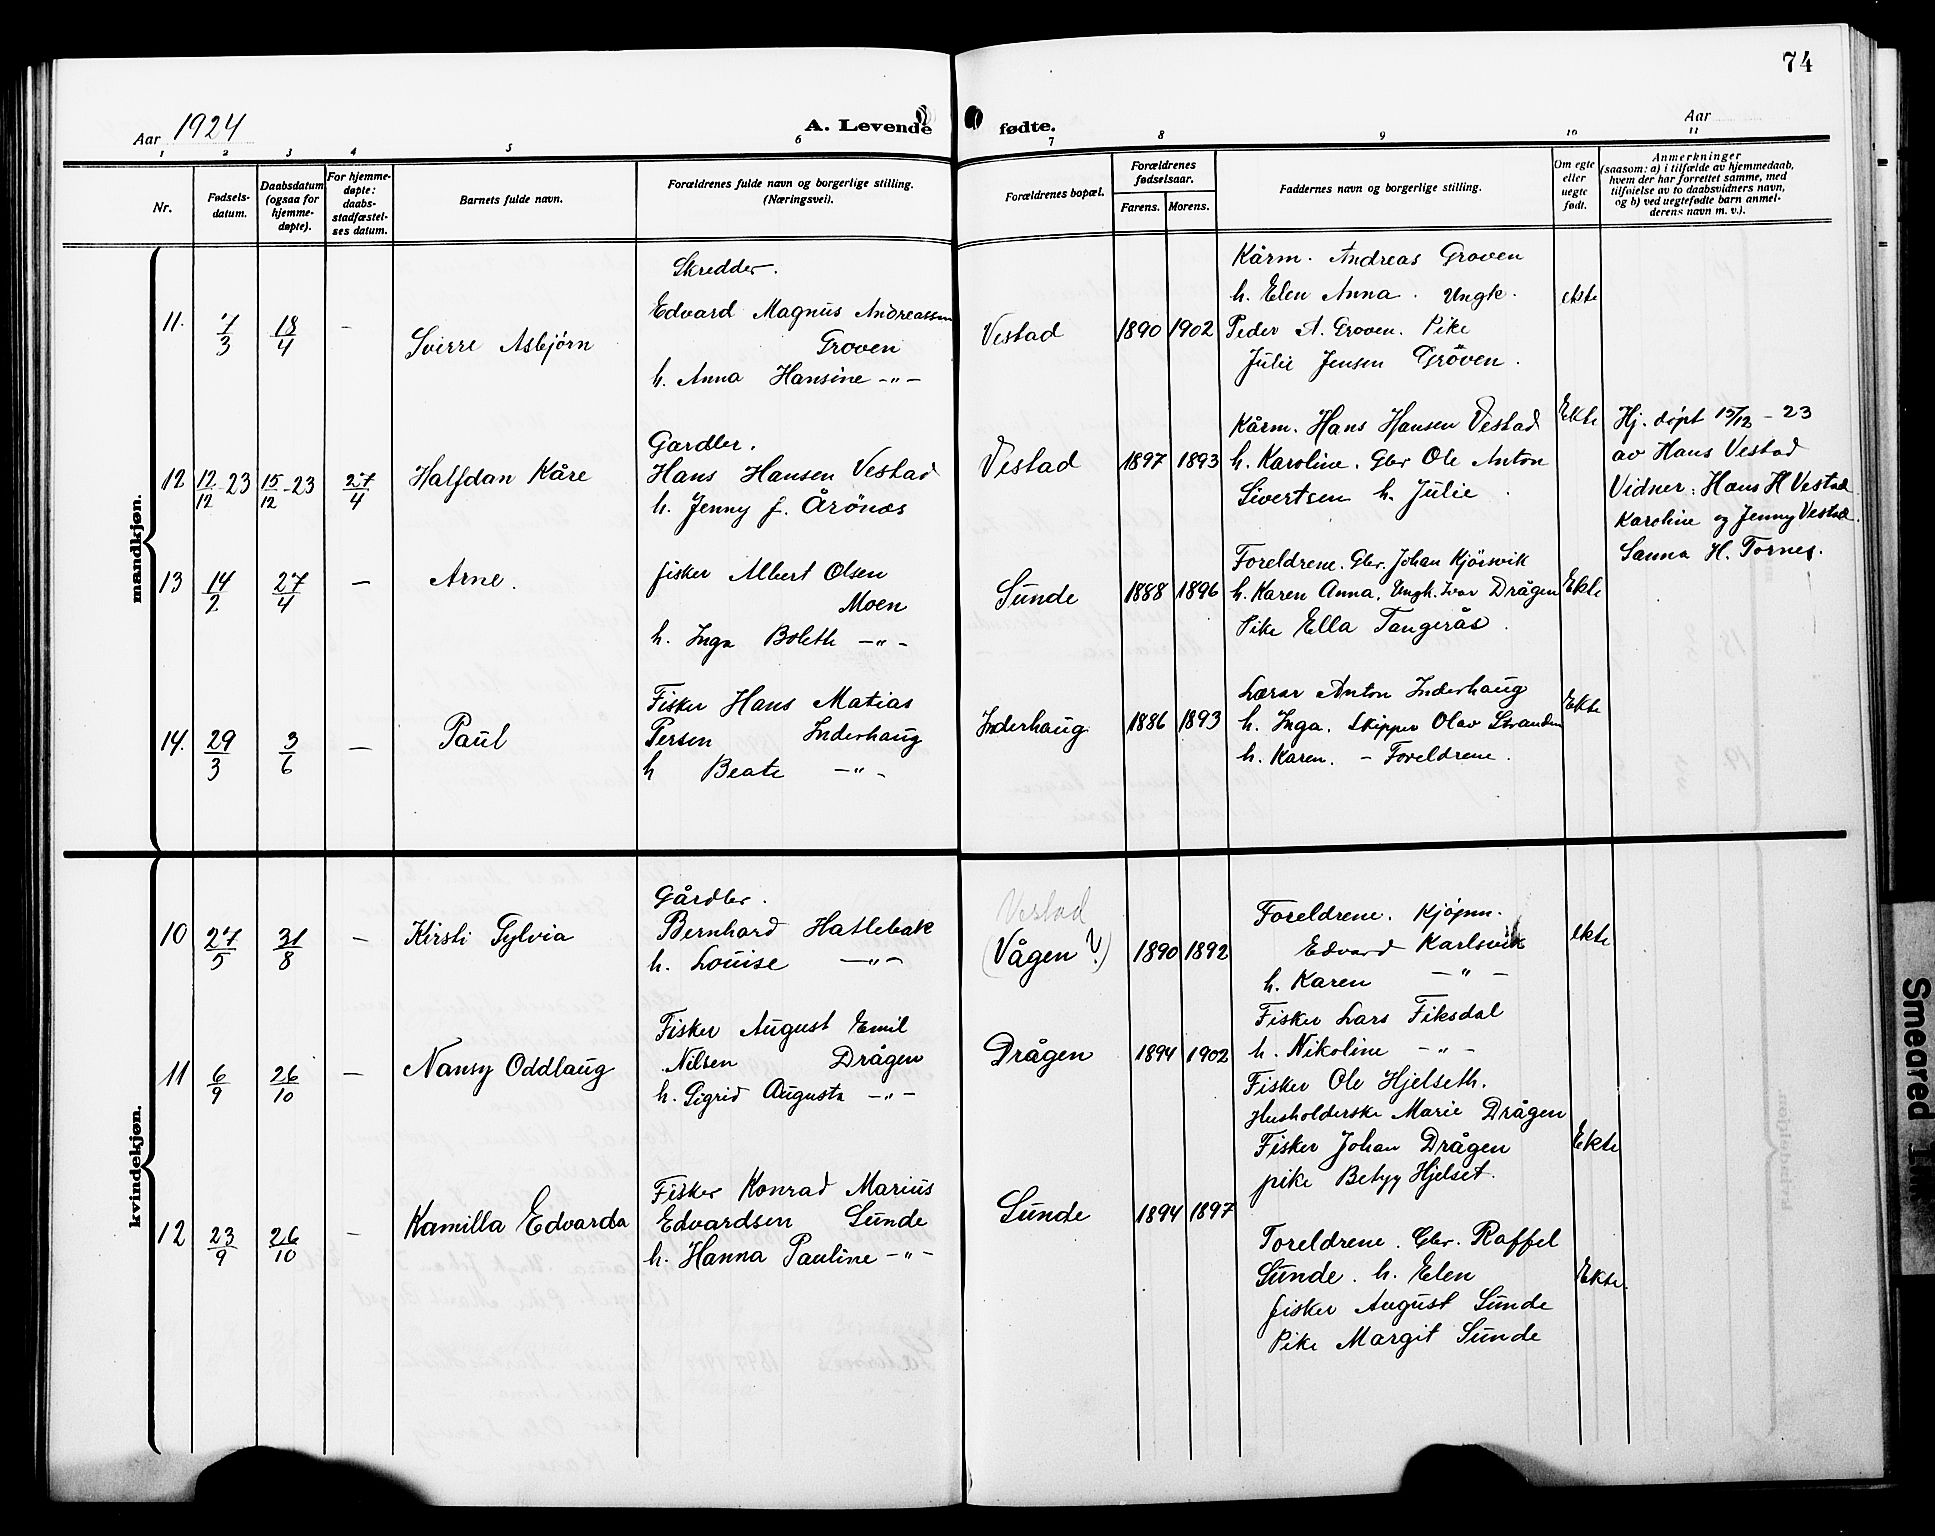 74
Aar 1924
A. Levende fødte.
Aar
1 2 3 4 5 6 7 8 9 10 11
Nr.
Fødsels-
datum.
Daabsdatum
(ogsaa for
hjemme-
døpte).
For hjemme-
døpte:
daabs-
stadfæstel-
ses datum.
Barnets fulde navn.
Forældrenes fulde navn og borgerlige stilling.
(Næringsvei).
Forældrenes bopæl.
Forældrenes
fødselsaar.
Farens. Morens.
Faddernes navn og borgerlige stilling.
Om egte
eller
uegte
født.
Anmerkninger
(saasom: a) i tilfælde av hjemmedaab,
hvem der har forrettet samme, med
tilføielse av to daabsvidners navn,
og b) ved uegtefødte barn anmel-
derens navn m. v.).
mandkjøn.
11. 7/3 18/4 - Sverre Asbjørn
Skredder.
Edvard Magnus Andreassen
Groven
h. Anna Hansine -"-
Vestad 1890 1902
Kårm. Andreas Groven
h. Elen Anna. Ungk.
Peder A. Groven. Pike
Julie Jensen Gröven.
ekte
12 12/12-23 15/12-23 27/4 Halfdan Kåre
Gardbr.
Hans Hansen Vestad
h. Jenny f. Årönes
Vestad 1897 1893
Kårm. Hans Hansen Vestad
h. Karoline. Gbr Ole Anton
Sivertsen h. Julie.
Ekte
Hj. døpt 15/12 - 23
av Hans Vestad
Vidner: Hans H Vestad
Karoline og Jenny Vestad.
Sanna H. Tornes.
13 14/2 27/4 - Arne.
fisker Albert Olsen
Moen
h. Inga Boleth -"-
Sunde 1888 1896
Foreldrene. Gbr. Johan Kjörsvik
h. Karen Anna. Ungk. Ivar Drågen
Pike Ella Tangerås.
Ekte
14. 29/3 3/6 - Paul
Fisker Hans Matias
Persen Inderhaug
h Beate -"-
Inderhaug 1886 1893
Lærer Anton Inderhaug
h. Inga. Skipper Olav Stranden
h. Karen. - Foreldrene.
Ekte
kvindekjøn.
10 27/5 31/8 - Kirsti Sylvia
Gårdbr.
Bernhard Hatlebak
h. Louise -"-
Vestad
(Vågen?) 1890 1892
Foreldrene. Kjøpm.
Edvard Karlsvik
h. Karen -"-
ekte
11 6/9 26/10 - Nansy Oddlaug
Fisker August Emil
Nilsen Drågen
h. Sigrid Augusta -"-
Drågen 1894 1902
Fisker Lars Fiksdal
h. Nikoline -"-
Fisker Ole Hjelseth.
Husholderske Marie Drågen
Fisker Johan Drågen
pike Betzy Hjelset.
Ekte
12 23/9 26/10 - Kamilla Edvarda
Fisker Konrad Marius
Edvardsen Sunde
h. Hanna Pauline -"-
Sunde 1894 1897
Foreldrene. Gbr. Raffel
Sunde. h. Elen
fisker August Sunde
Pike Margit Sunde
Ekte.
Smeared